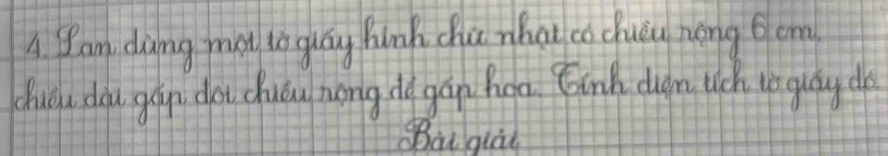 4. Lan dùng một tờ giấy hình chữ nhật có chiều rộng 6 cm.
chiều dài gấp đôi chiều rộng để gấp hoa. Tính diện tích tờ giấy đó
Bài giải